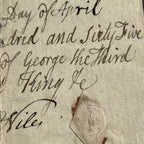 Day of April
ndred and Sixty Five
of George the Third
King &c
Niles